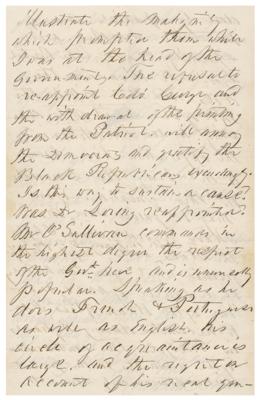 Illustrate the malignity
which prompted them while
I was at the head of the
Government. The refusal to
re-appoint Col. George and
the withdrawal of the printing
from the Patriot will annoy
the Democrats and gratify the
Black Republicans exceedingly.
Is this way to sustain a cause?
Was Dr Loring reappointed?
Mr O'Sullivan commands in
the highest degree the respect
of the Govt. here and is unusually
popular. Speaking as he
does French & Portuguese
as wide as English, his
circle of acquaintance is
large, and the right on
account of his real gen-